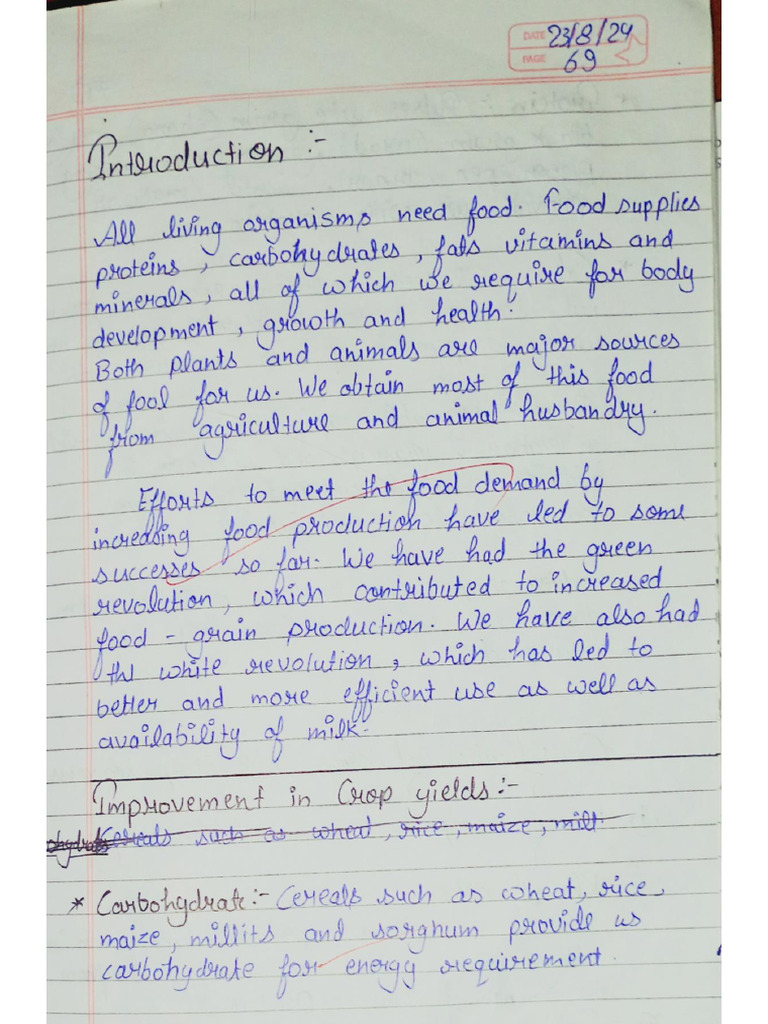 DATE 23/8/24
PAGE 69
Introduction :-
All living organisms need food. Food supplies
proteins, carbohydrates, fats vitamins and
minerals, all of which we require for body
development, growth and health.
Both plants and animals are major sources
of food for us. We obtain most of this food
from agriculture and animal husbandry.
Efforts to meet the food demand by
increasing food production have led to some
successes so far. We have had the green
revolution, which contributed to increased
food - grain production. We have also had
the white revolution, which has led to
better and more efficient use as well as
availability of milk.
Improvement in Crop yields :-
Cereals such as wheat, rice, maize, milt
* Carbohydrate :- Cereals such as wheat, rice,
maize, millits and sorghum provide us
carbohydrate for energy requirement.